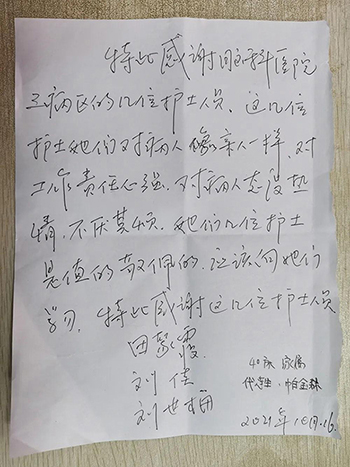 特此感谢胸科医院
三病区的几位护士人员、这几位
护士她们对病人像亲人一样、对
工作责任心强、对病人态度热
情、不厌其烦、她们几位护士
是值的敬佩的、应该向她们
学习、特此感谢这几位护士人员
田家霞
刘佳
刘世
40床 家属
2021年10月.16.